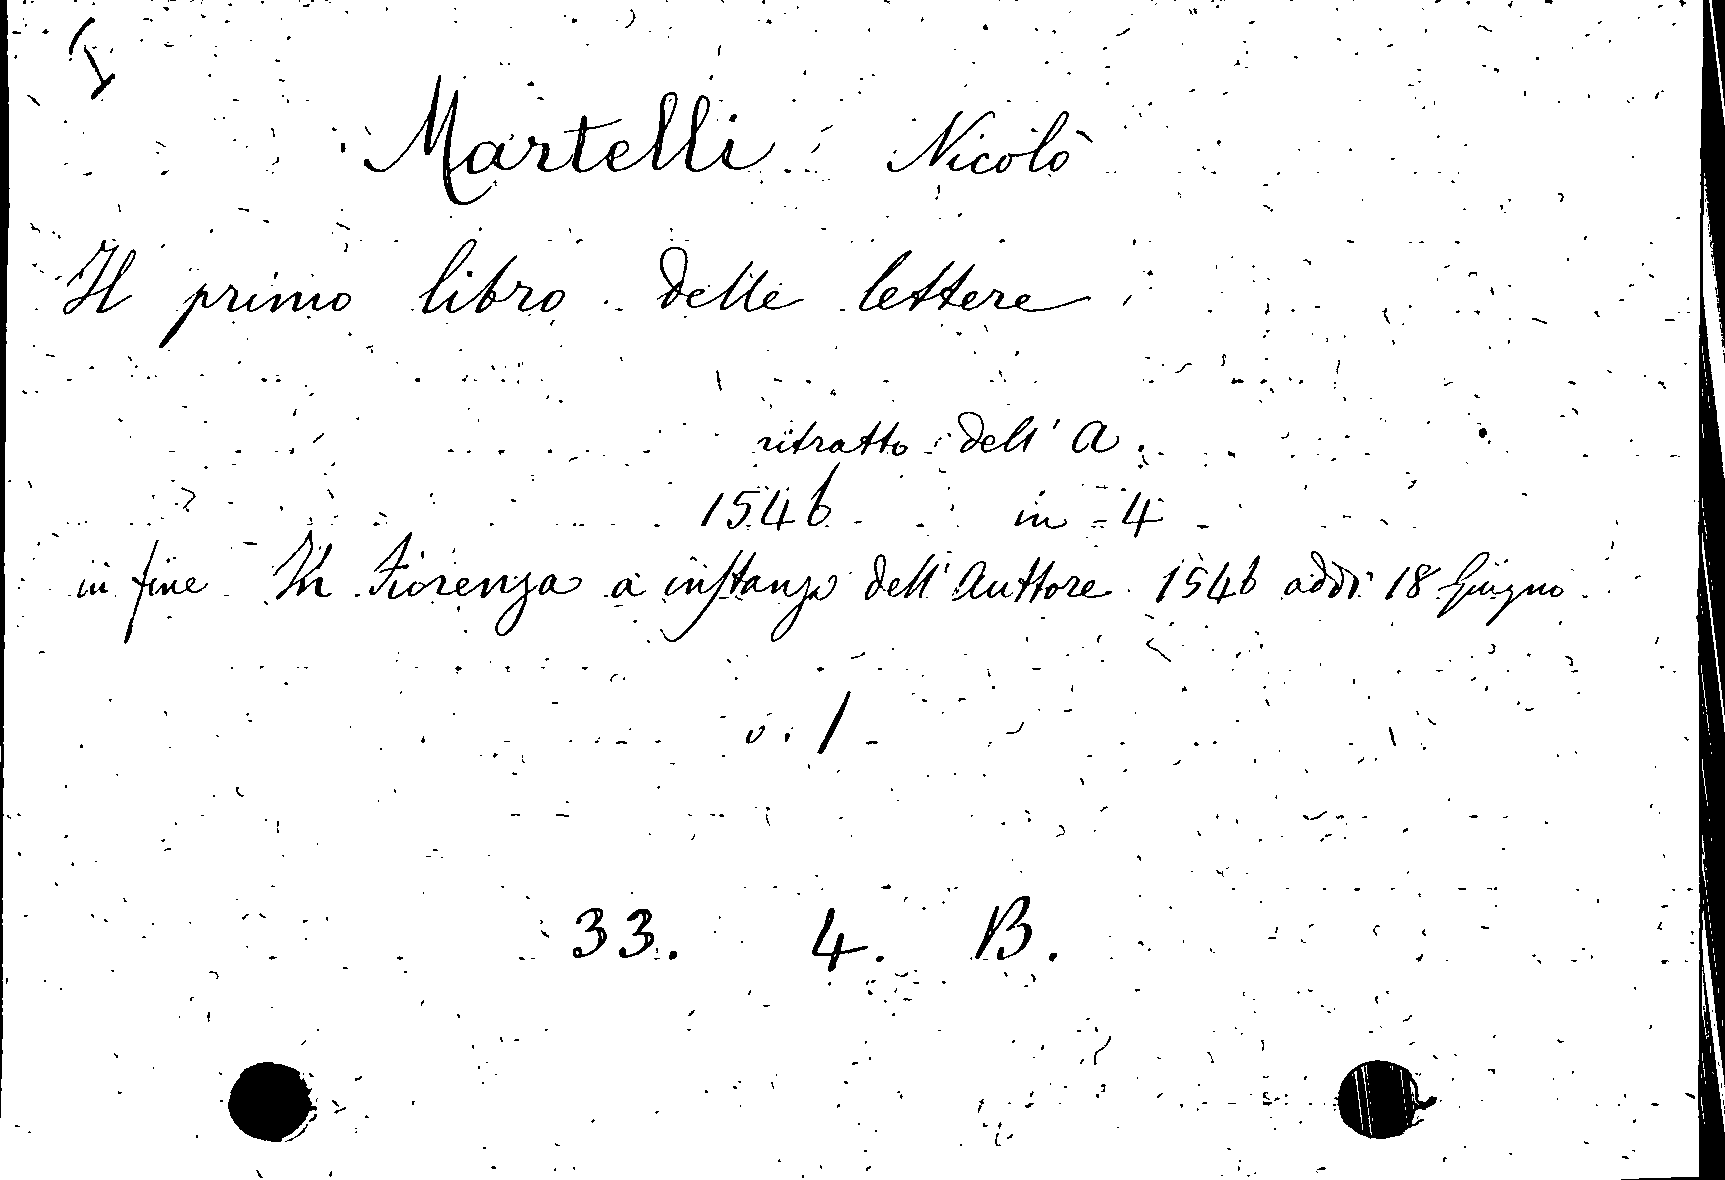 I
Martelli Nicolò
Il primo libro delle lettere
ritratto dell' A.
1546 in 4
in fine In Fiorenza a instanza dell' Auttore 1546 addì 18 Giugno
v. 1
33. 4. B.